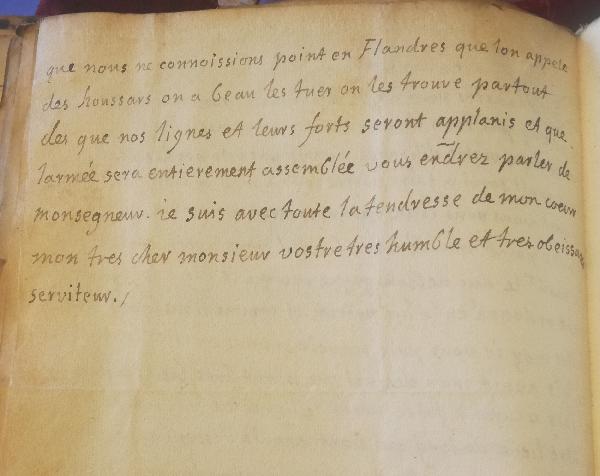 que nous ne connoissions point en Flandres que lon appele
des houssars on a beau les tuer on les trouve partout
des que nos lignes et leurs forts seront applanis et que
larmée sera entierement assemblée vous endrez parler de
monsegneur. ie suis avec toute la tendresse de mon coeur
mon tres cher monsieur vostre tres humble et tres obeissant
serviteur./